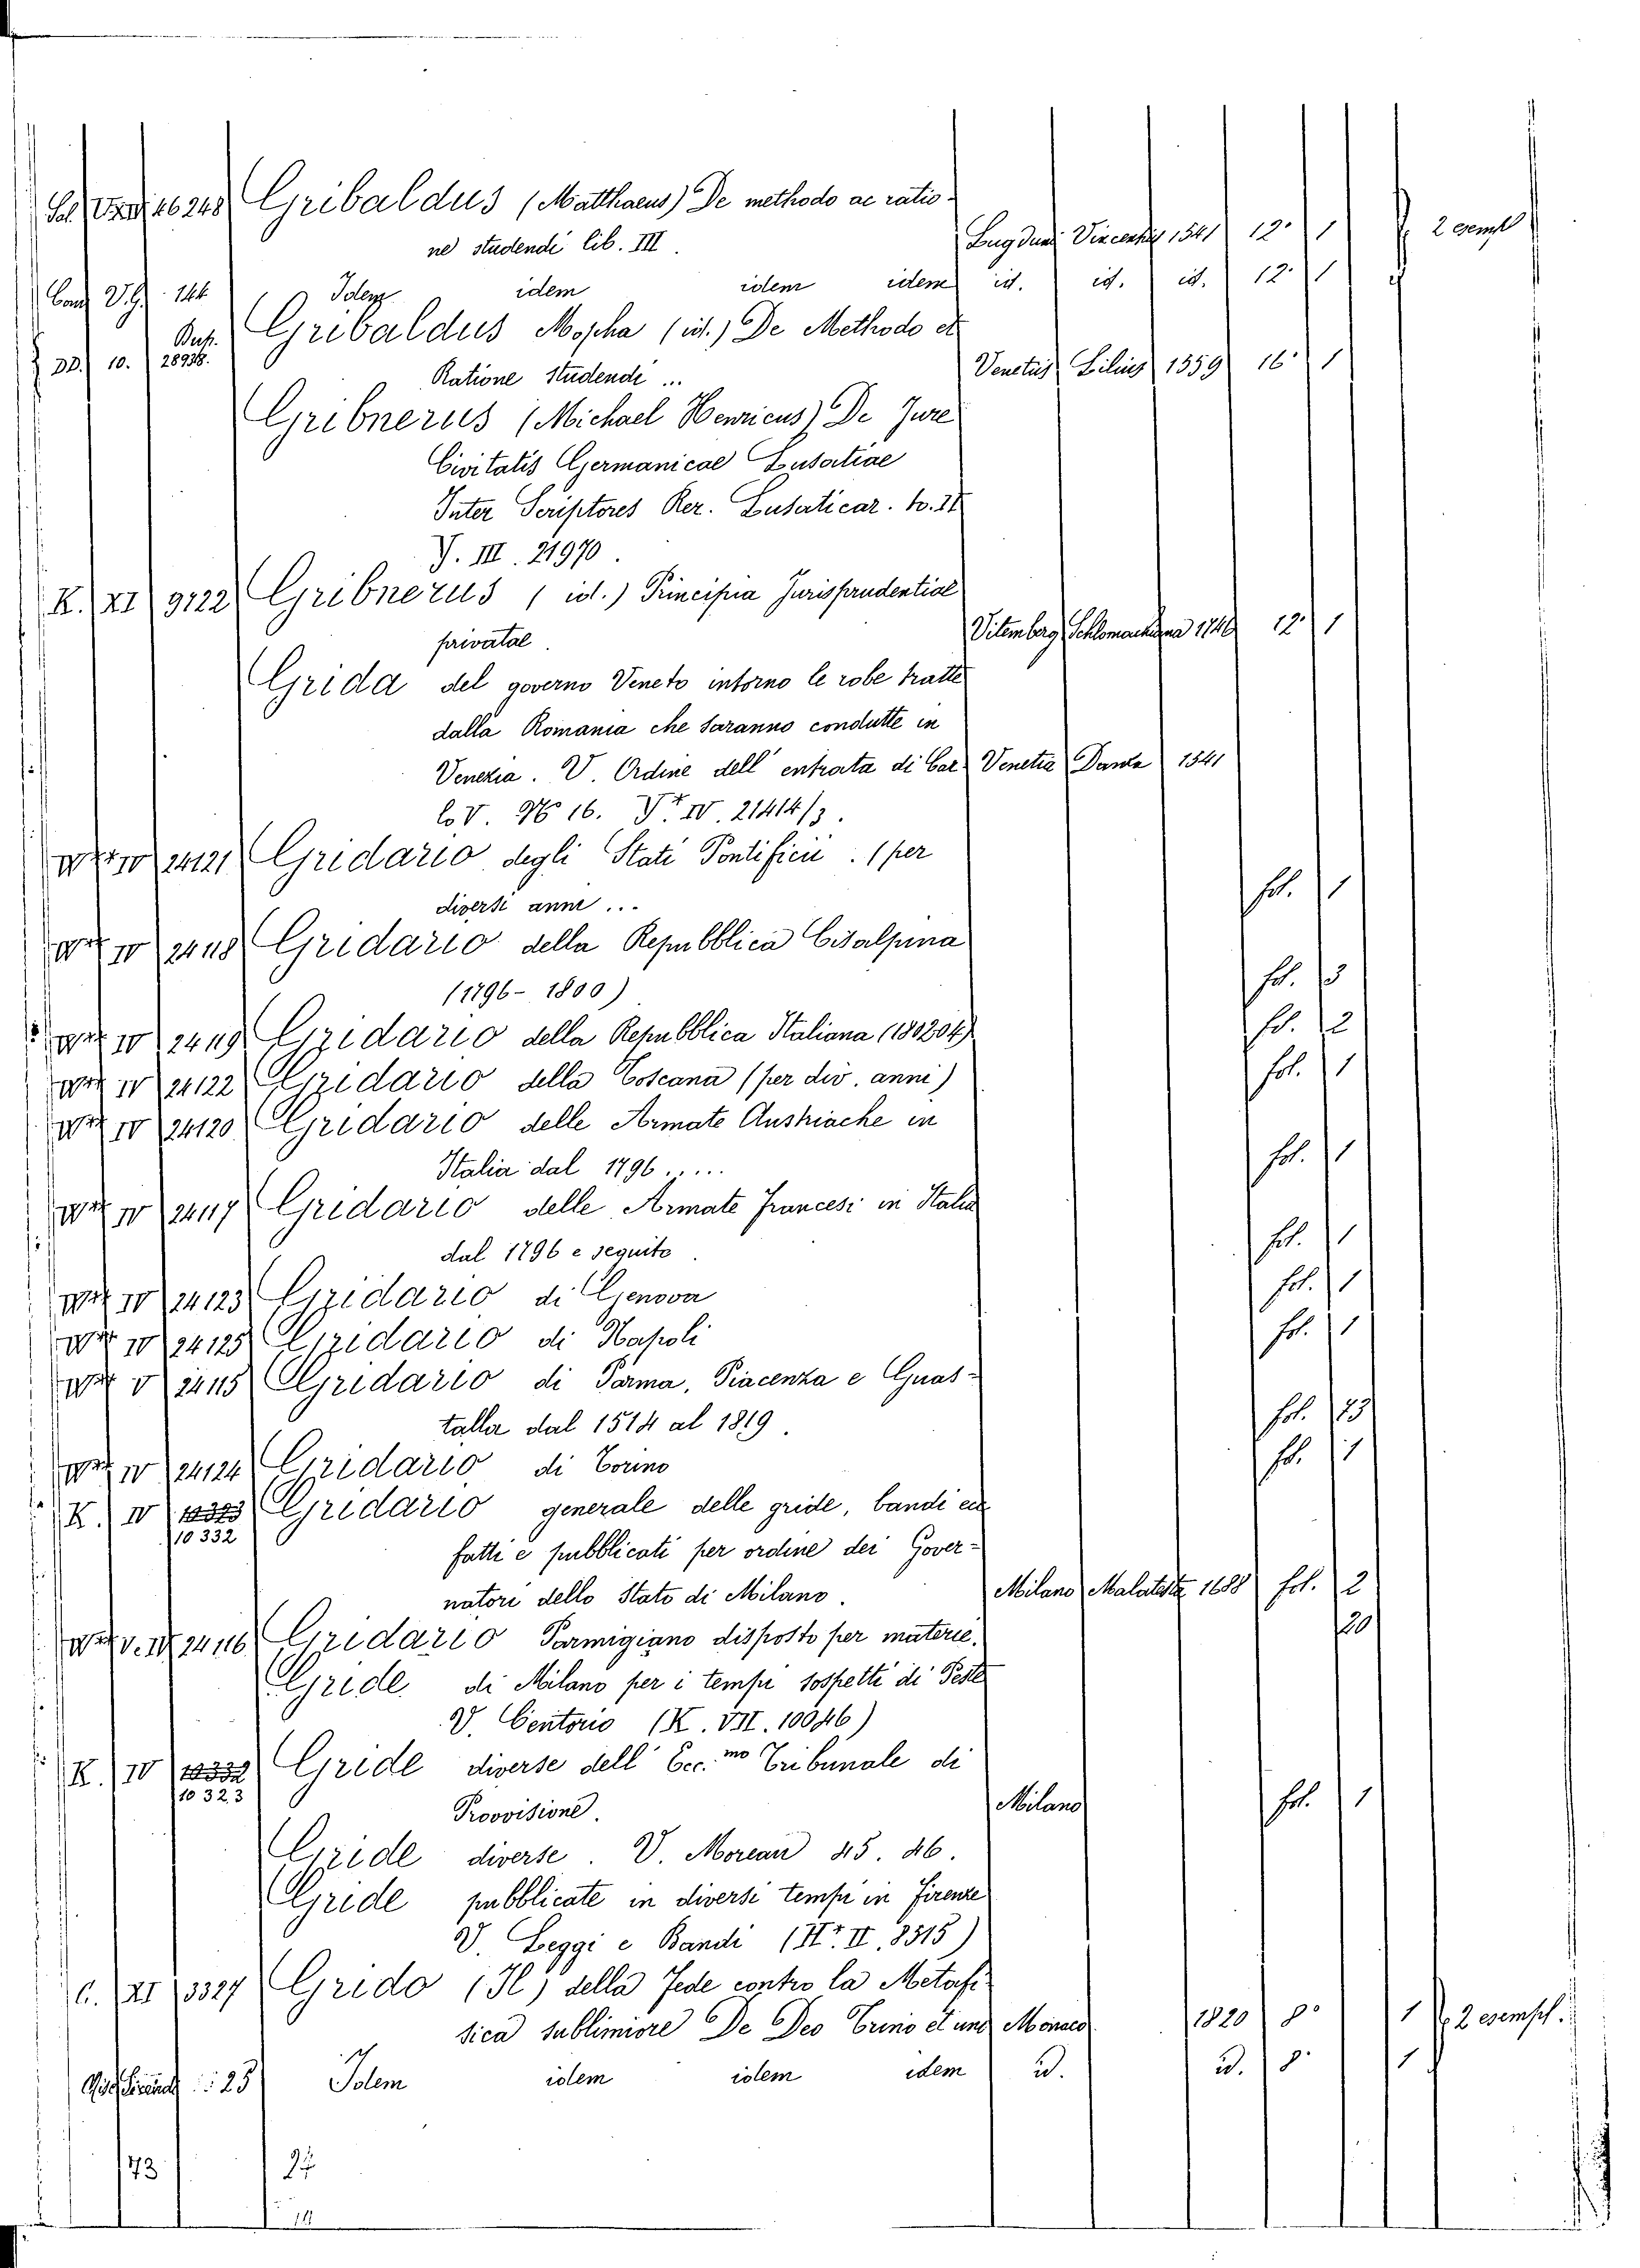 Gribaldus (Matthaeus) De methodo ac ratio-
ne studendi lib. III. Lugduni 1541 12.° 1 2 esempl
144 Idem idem idem idem id. id. id. 12.° 1
Gribaldus Mopha (id.) De Methodo et
10. 28938. Ratione studendi ... Venetiis Lilius 1559 16° 1
Gribnerus (Michael Henricus) De Jure
Civitatis Germanicae Lusatiae
Inter Scriptores Rer. Lusaticar. to. II
V. III. 21970.
K. XI 9122 Gribnerus (id.) Principia Jurisprudentiae
privatae. Vitemberg 12° 1
Grida del governo Veneto intorno le robe tratte
dalla Romania che saranno condutte in
Venezia. V. Ordine dell' entrata di Car- Venetia 1541
lo V. No 16. IV. 21414/3.
IV 24121 Gridario degli Stati Pontificii. (per
diversi anni ... fol. 1
IV 24118 Gridario della Repubblica Cisalpina
(1796-1800) fol. 3
IV 24119 Gridario della Repubblica Italiana (180204) fol. 2
IV 24122 Gridario della Toscana (per div. anni) fol. 1
IV 24120 Gridario delle Armate Austriache in
Italia dal 1796..... fol. 1
IV 24117 Gridario delle Armate Francesi in Italia
dal 1796 e seguito. fol. 1
IV 24123 Gridario di Genova fol. 1
IV 24125 Gridario di Napoli fol. 1
V 24115 Gridario di Parma, Piacenza e Guas-
talla dal 1514 al 1819. fol. 123
IV 24124 Gridario di Torino fol. 1
K. IV Gridario generale delle gride, bandi ec
10332 fatti e pubblicati per ordine dei Gover-
natori dello Stato di Milano. Milano Malatesta 1688 fol. 2
24116 Gridario Parmigiano disposto per materie. 20
Gride di Milano per i tempi sospetti di Peste
V. Centorio (K. VII. 10046)
K. IV 10332 Gride diverse dell' Ecc.mo Tribunale di
10323 Provvisione. Milano fol. 1
Gride diverse. V. Morean 45. 46.
Gride pubblicate in diversi tempi in Firenze
V. Leggi e Bandi (II. 8515)
C. XI 3327 Grido (Il) della Fede contro la Metafi-
sica sublimiore De Deo Trino et uno Monaco 1820 8° 1 2 esempl.
25 Idem idem idem idem id. id. 8° 1
73 27